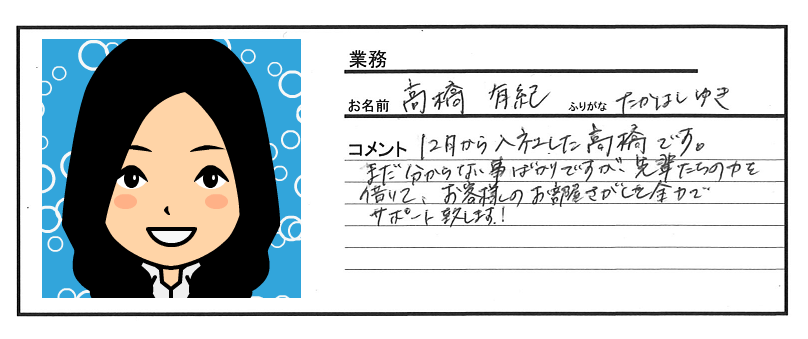 業務
お名前 高橋 有紀 ふりがな たかはし ゆき
コメント 12月から入社した高橋です。
まだ分からない事ばかりですが、先輩たちの力を
借りて、お客様のお部屋さがしを全力で
サポート致します!